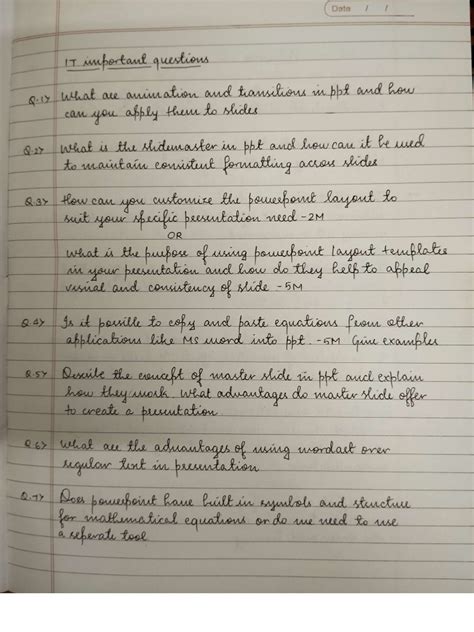 Date / /
IT important questions
Q.1> What are animation and transitions in ppt and how
can you apply them to slides
Q.2> What is the slidemaster in ppt and how can it be used
to maintain consistent formatting across slides
Q.3> How can you customize the powerpoint layout to
suit your specific presentation need -2M
OR
What is the purpose of using powerpoint layout templates
in your presentation and how do they help to appeal
visual and consistency of slide -5M
Q.4> Is it possible to copy and paste equations from other
applications like MS word into ppt. -5M Give examples
Q.5> Describe the concept of master slide in ppt and explain
how they work. What advantages do master slide offer
to create a presentation
Q.6> What are the advantages of using wordart over
regular text in presentation
Q.7> Does powerpoint have built in symbols and structure
for mathematical equations or do we need to use
a seperate tool